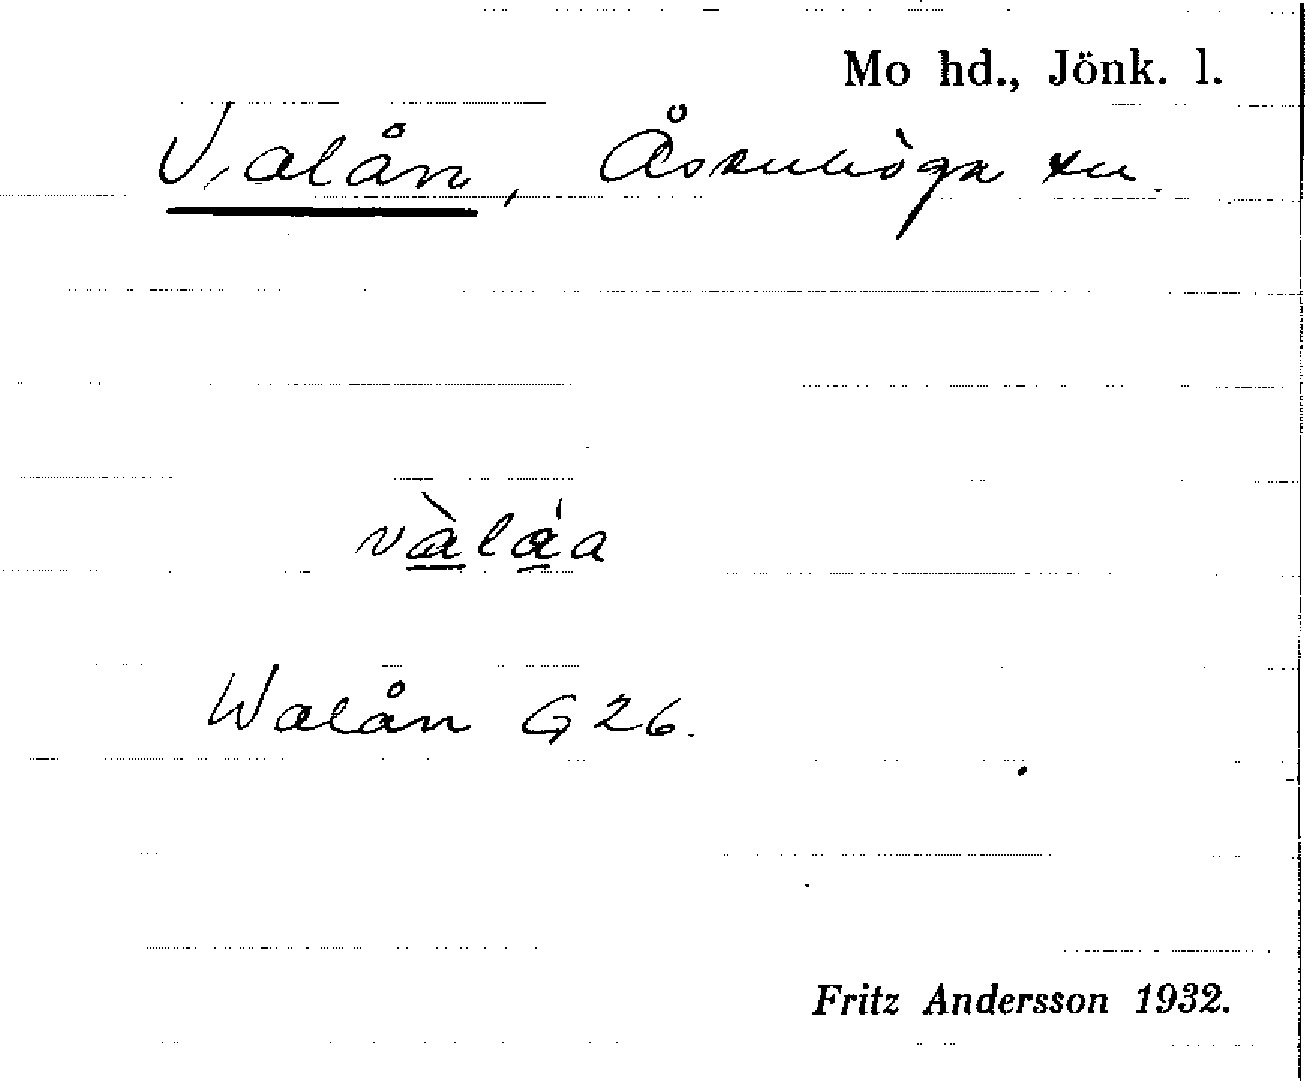 Mo hd., Jönk. l.
Valån, Åsenhöga sn.
vàláa
Walån G 26.
Fritz Andersson 1932.